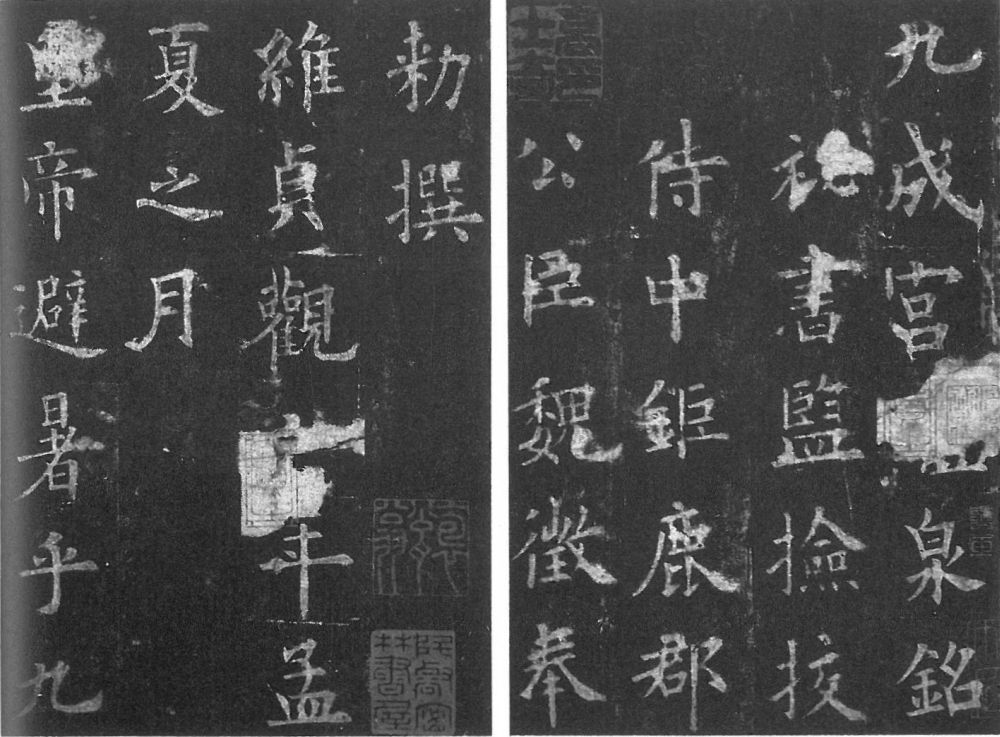 九成宮泉銘
祕書監撿挍
侍中鉅鹿郡
公臣魏徵奉
敕撰
維貞觀年孟
夏之月
皇帝避暑乎九